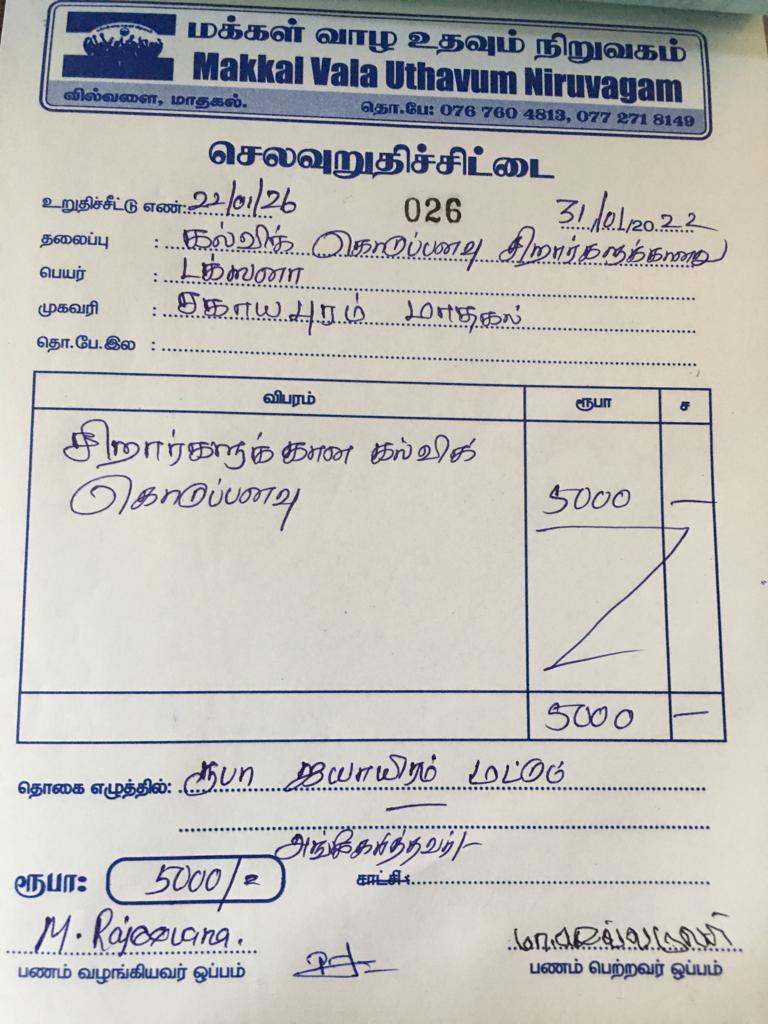 மக்கள் வாழ உதவும் நிறுவகம்
Makkal Vala Uthavum Niruvagam
வில்வளை, மாதகல். தொ.பே: 076 760 4813, 077 271 8149
செலவுறுதிச்சிட்டை
உறுதிச்சீட்டு எண்: 22/01/26 026 31/01/2022
தலைப்பு : கல்விக் கொடுப்பனவு சிறார்களுக்கானது
பெயர் :
முகவரி : சகாயபுரம் மாதகல்
தொ.பே.இல :
விபரம் ரூபா ச
சிறார்களுக்கான கல்விக்
கொடுப்பனவு 5000 —
5000 —
தொகை எழுத்தில்: ரூபா ஐயாயிரம் மட்டும்
அங்கேரித்தவர்/-
ரூபா: 5000/= காட்சி :
M. Rajeevana.
பணம் வழங்கியவர் ஒப்பம் பணம் பெற்றவர் ஒப்பம்